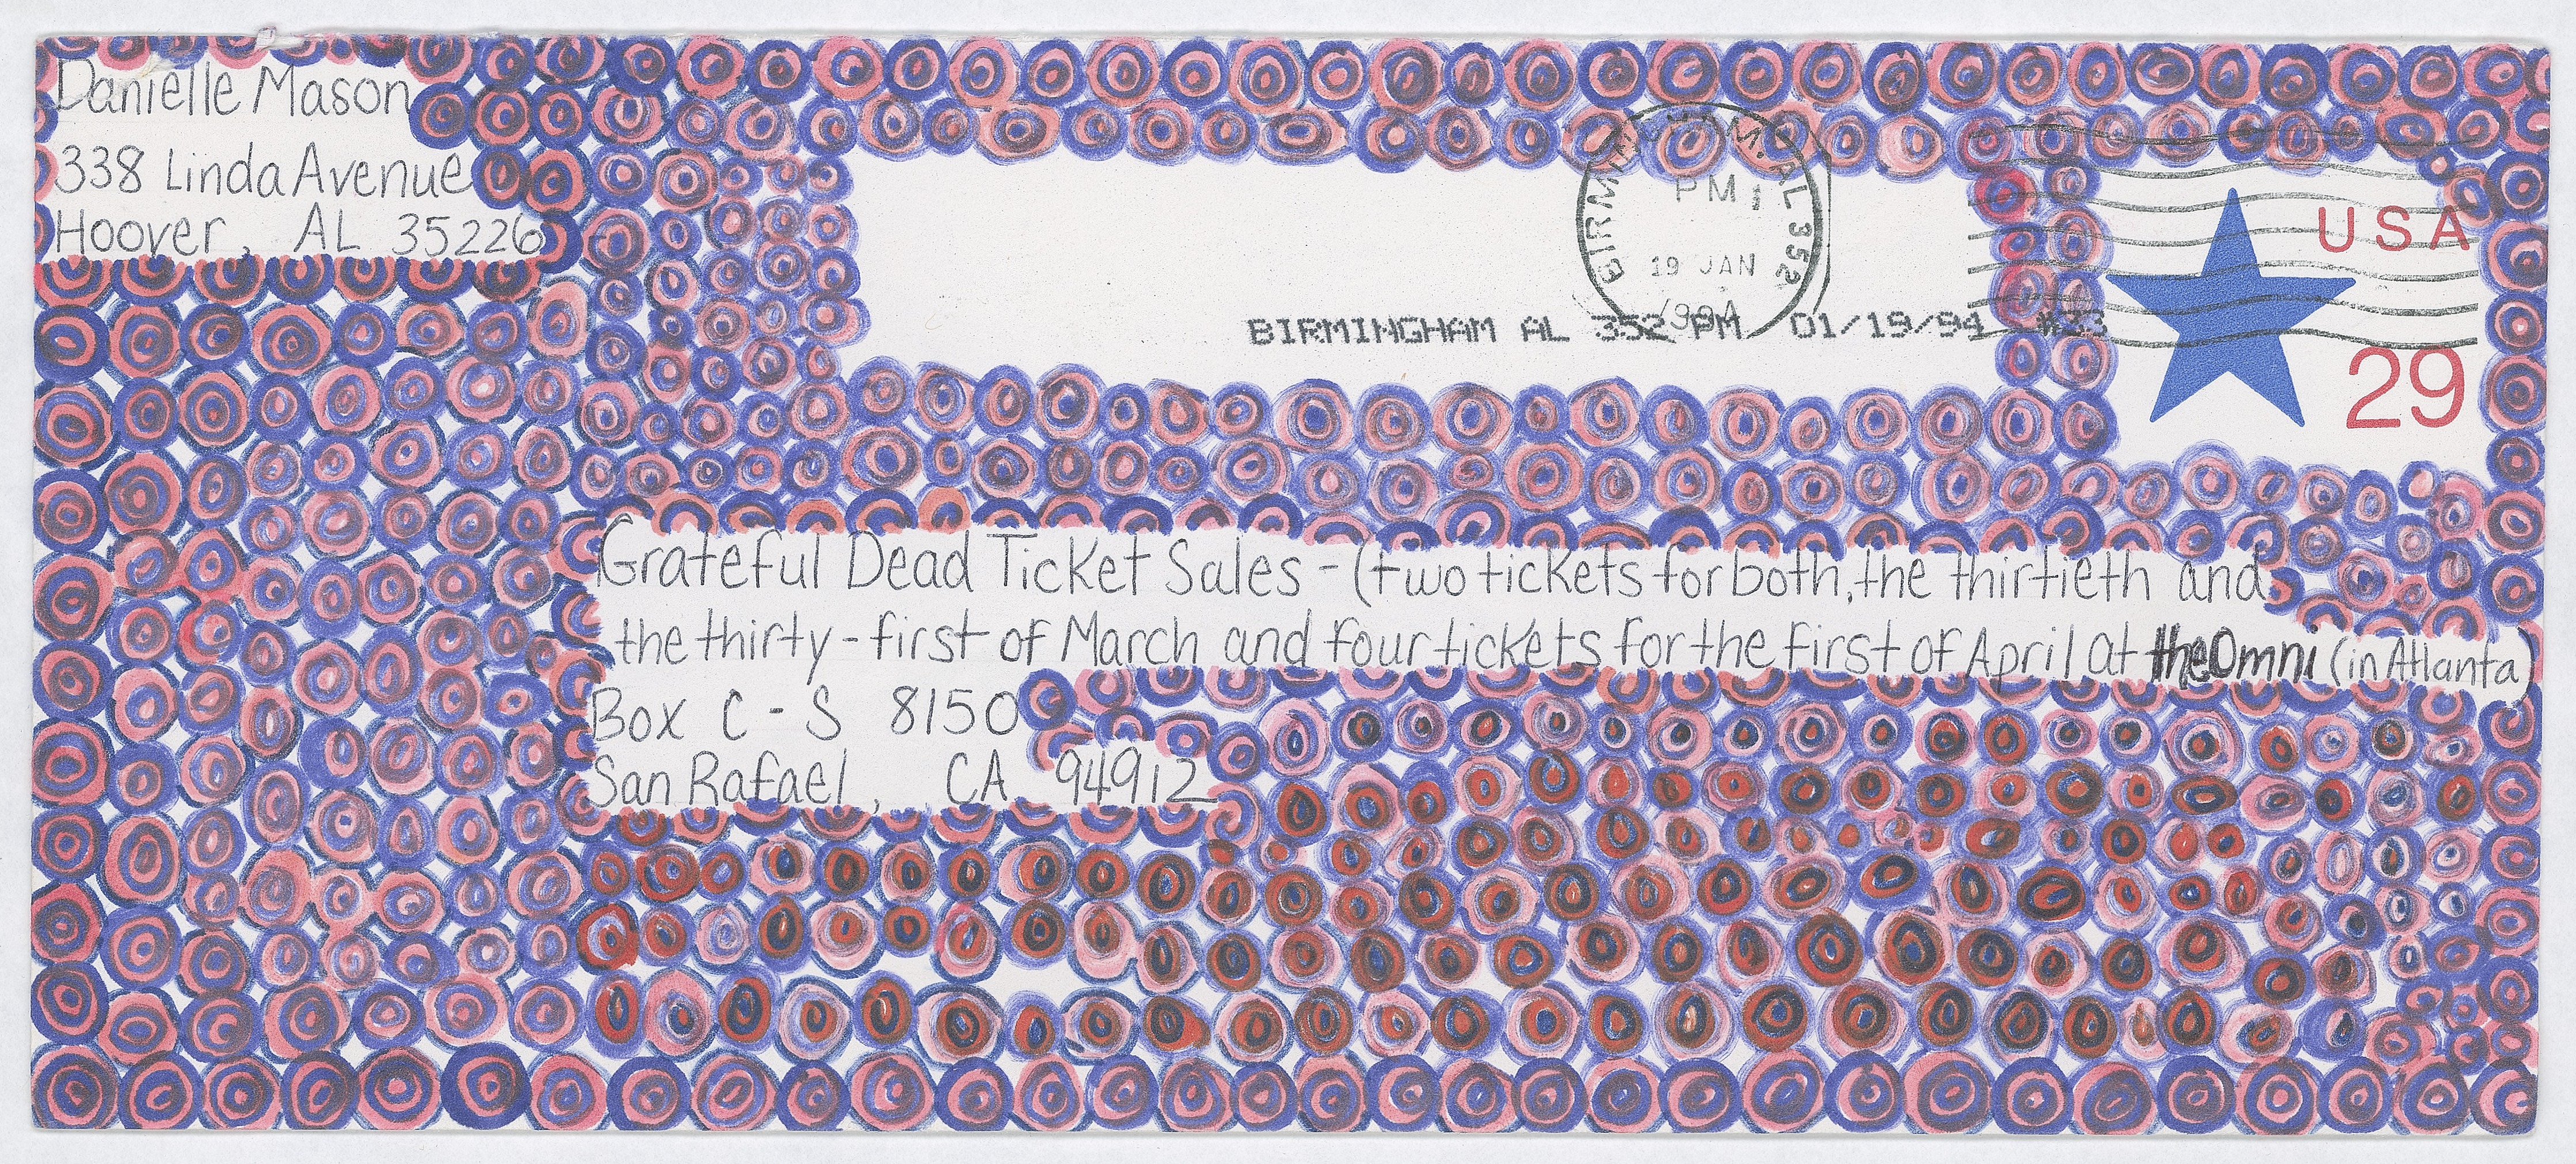 Danielle Mason
338 Linda Avenue
Hoover, AL 35226
BIRMINGHAM, AL 352
PM
19 JAN
1994
BIRMINGHAM AL 352 PM 01/19/94 #33
USA
29
Grateful Dead Ticket Sales - (two tickets for both, the thirtieth and
the thirty-first of March and four tickets for the first of April at the Omni (in Atlanta)
Box C - S 8150
San Rafael, CA 94912